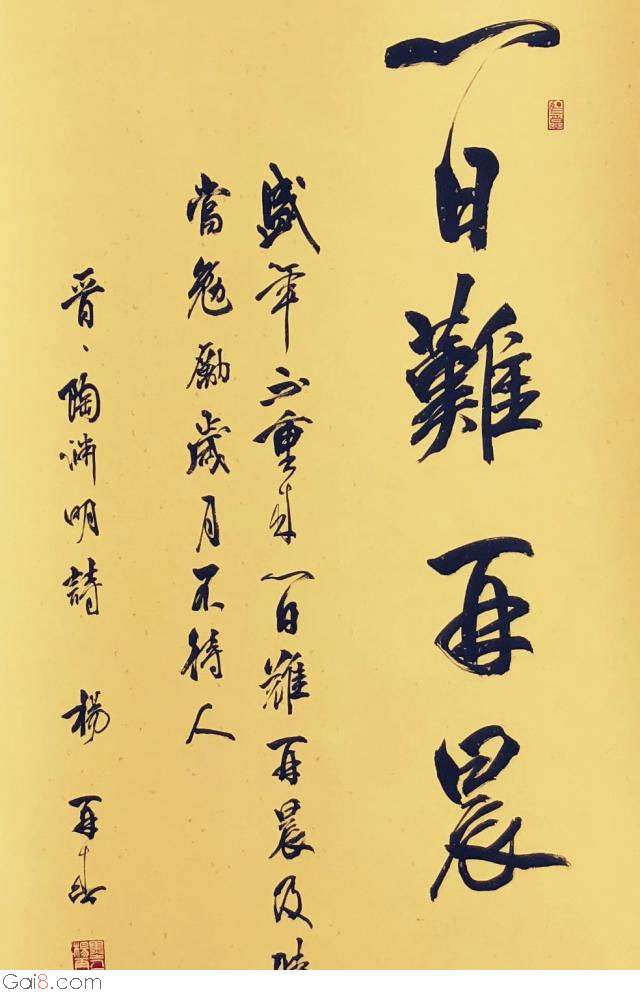 一日難再晨
盛年不重來一日難再晨及時
當勉勵歲月不待人
晋、陶渊明詩 楊再春
Gai8.com